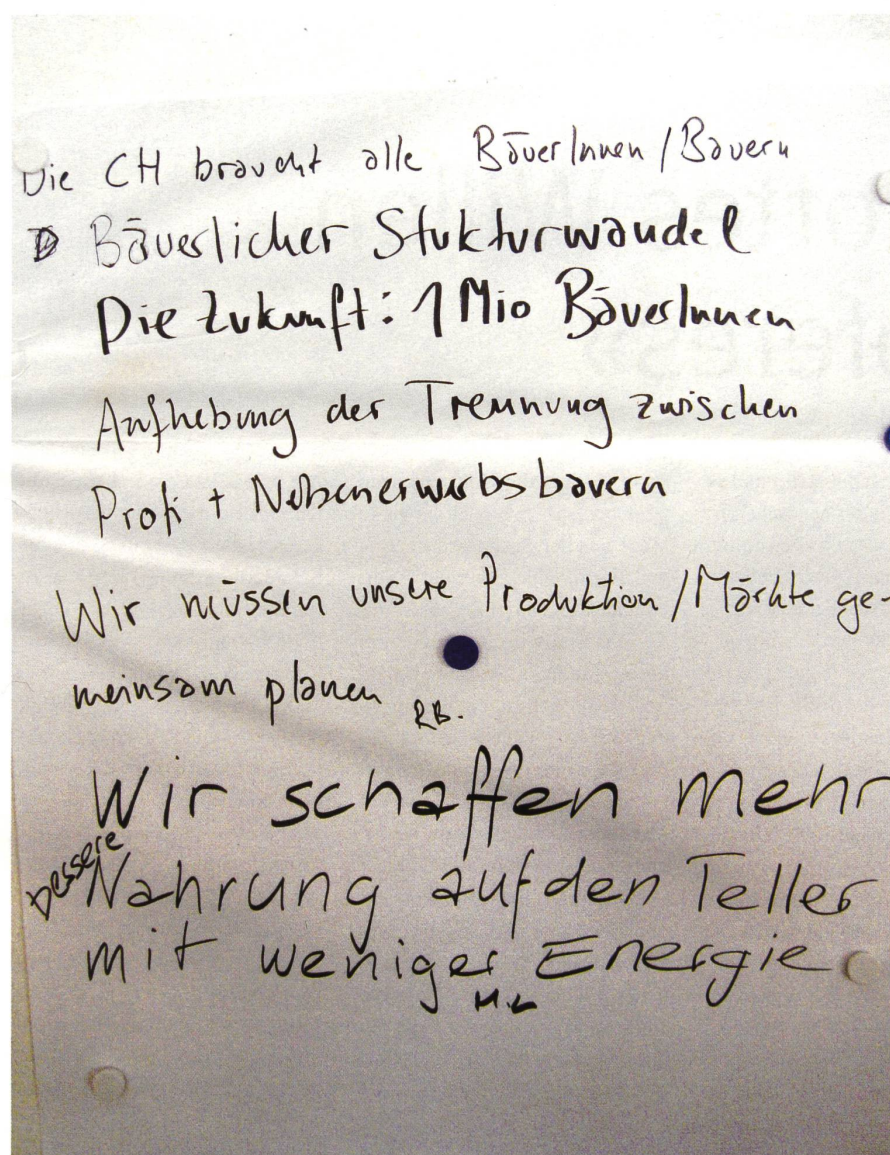 Die CH braucht alle BäuerInnen/Bauern
Bäuerlicher Stukturwandel
Die Zukunft: 1 Mio BäuerInnen
Aufhebung der Trennung zwischen
Profi + Nebenerwerbsbauern
Wir müssen unsere Produktion/Märkte ge-
meinsam planen RB.
Wir schaffen mehr
bessere
Nahrung auf den Teller
mit weniger Energie
M.L